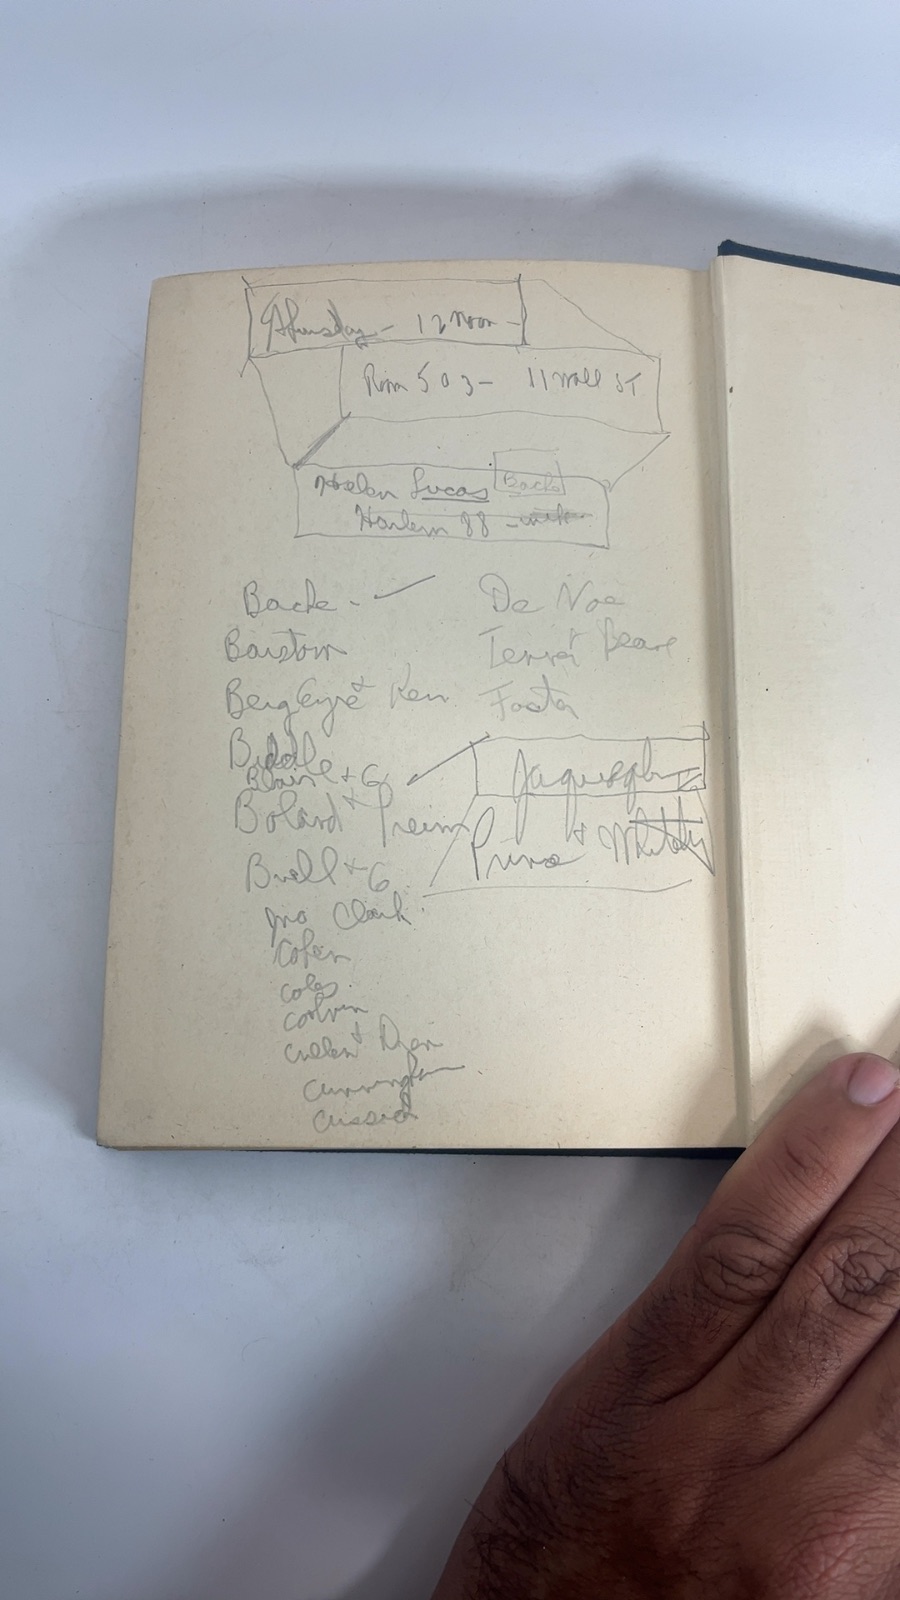 Thursday - 12 Noon -
Room 503 - 11 Wall ST
Helen Lucas Bache
Harlem 88 -
Bache -
Barstow
Berg Eyre + Kerr
Biddle
Blaine + G
Boland + Preim
Buell + G
Jno Clark
Cohen
Coles
Colvin
Cullen + Dyer
Cunningham
Cussick
De Noe
Terret Beane
Foster
Prine + Whitely